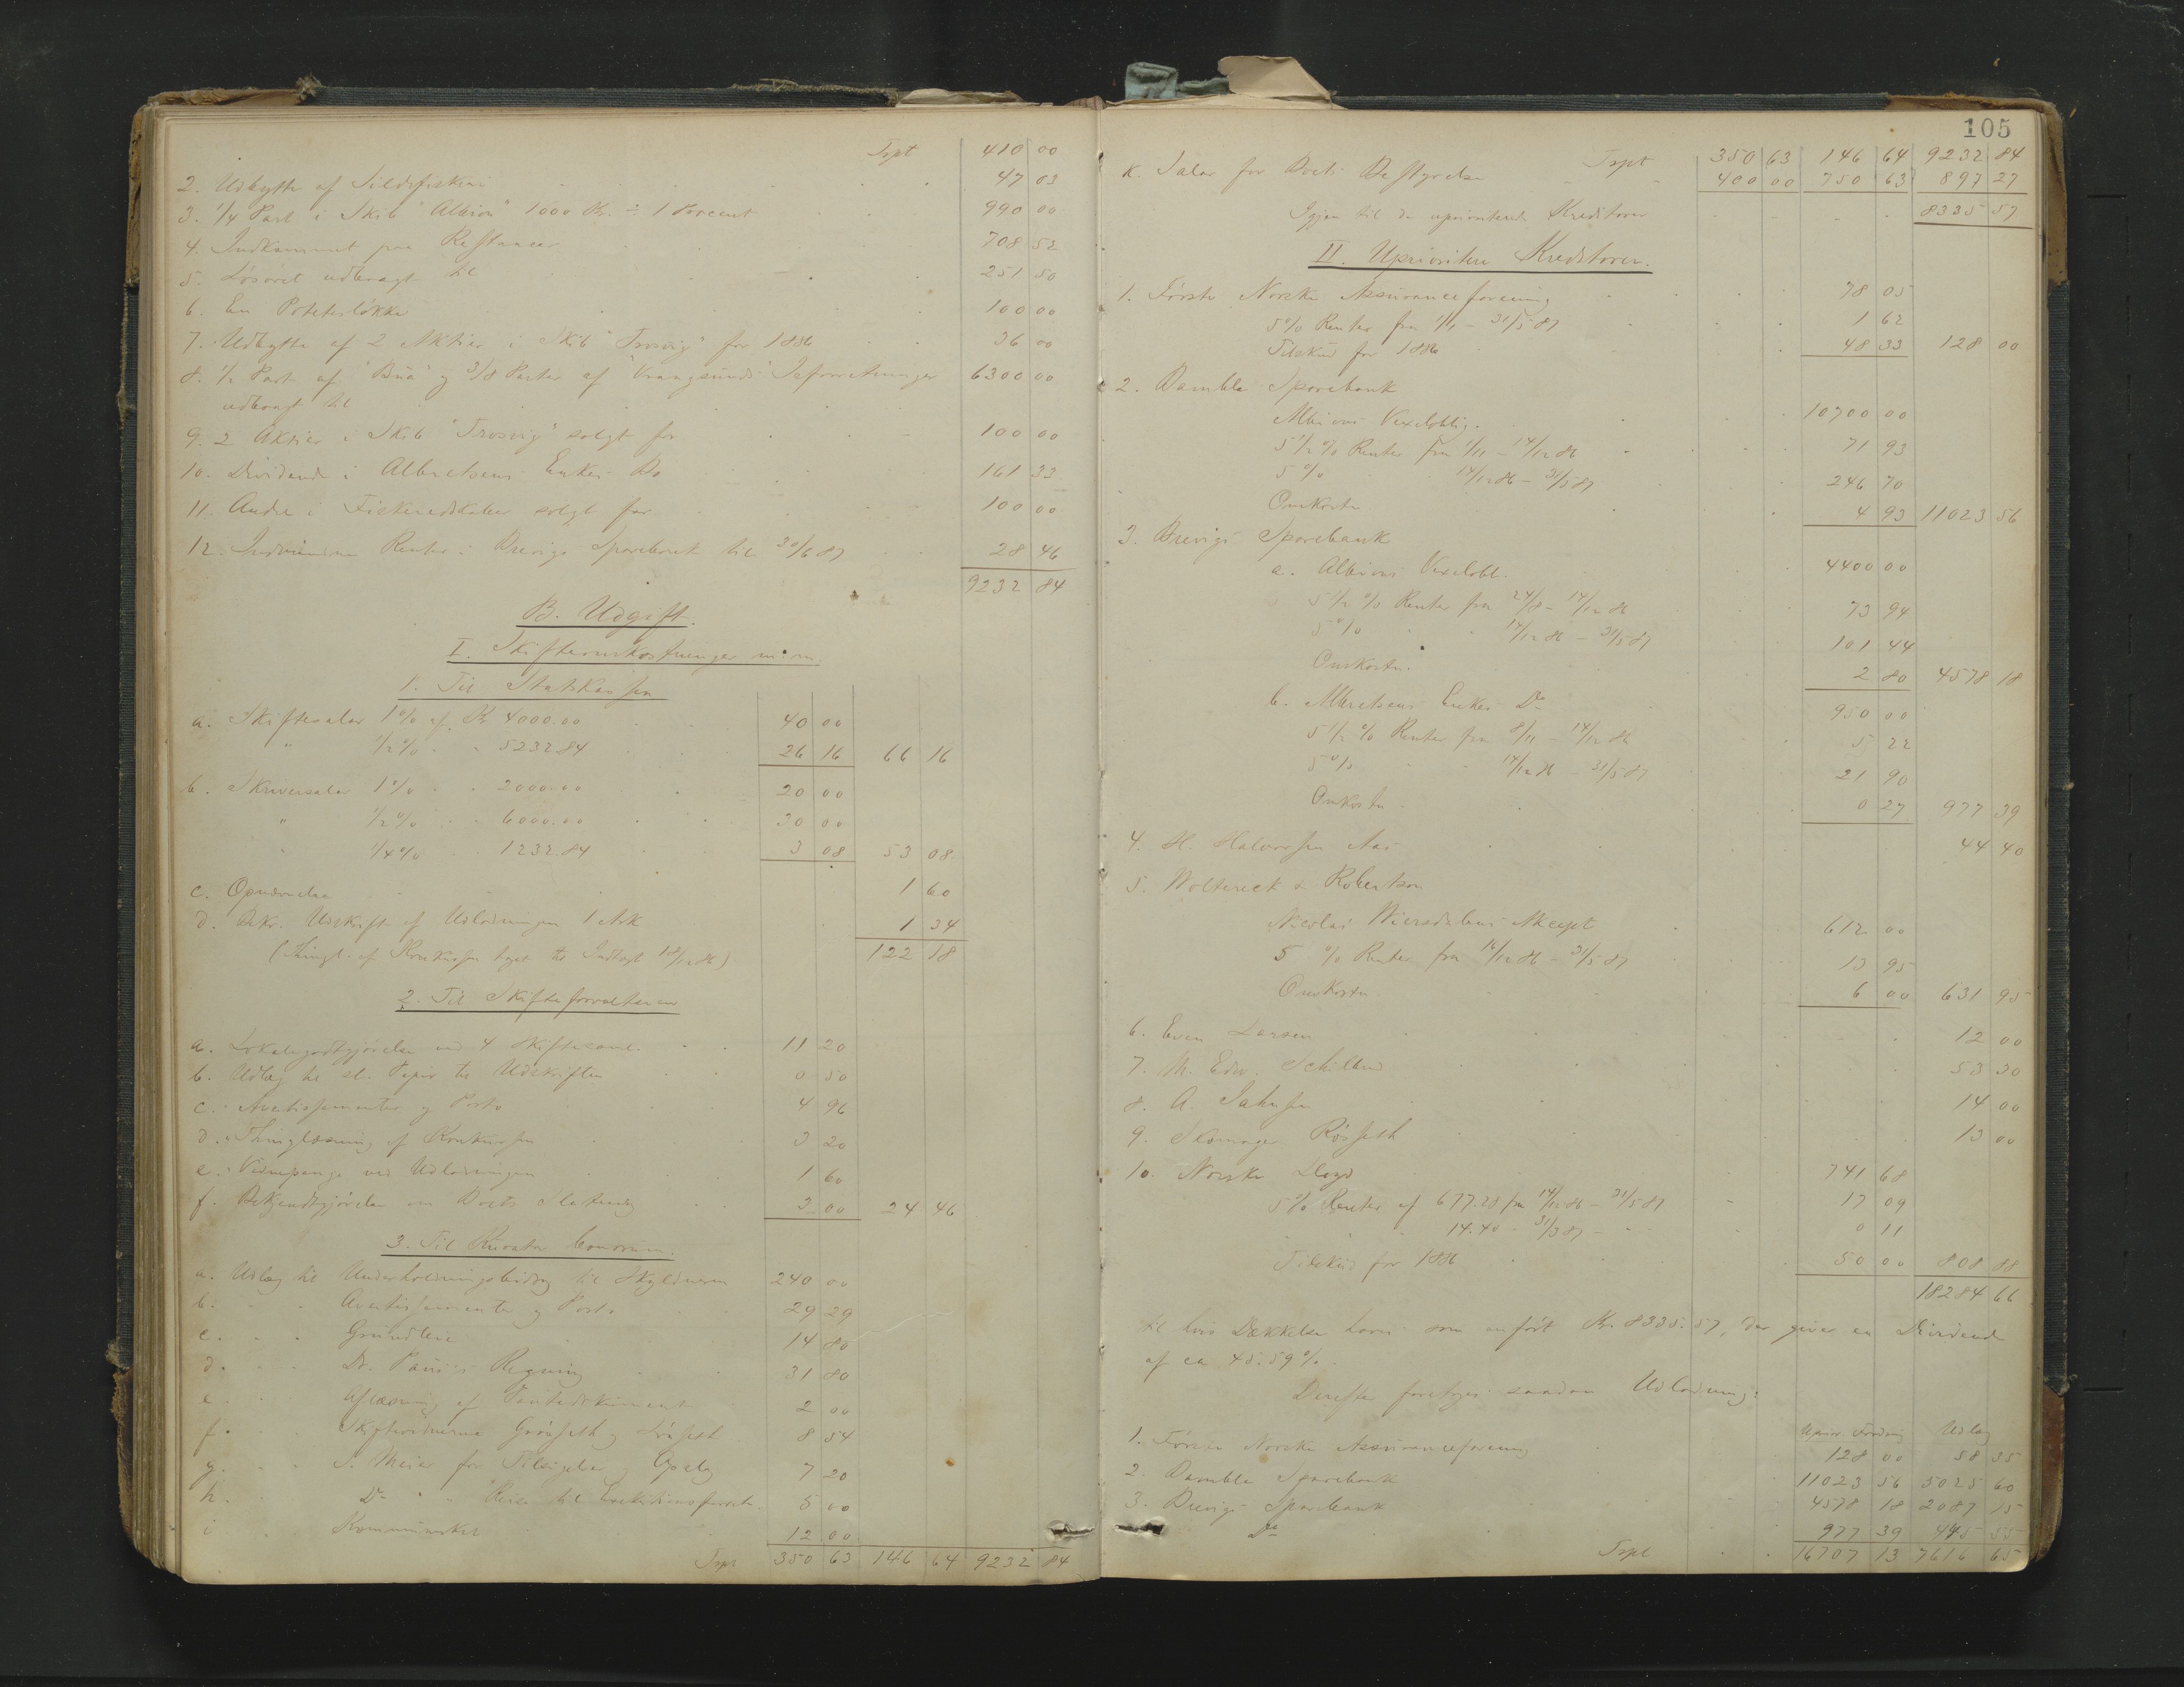 Tspt 410 00
2. Udbytte af Sildefiskeri 47 03
3. 1/4 Part i Skib "Albion" 1000 Kr. ÷ 1 Procent 990 00
4. Indkommet paa Restancer 708 52
5. Løsøret udbragt til 251 50
6. En Potetesløkke 100 00
7. Udbytte af 2 Aktier i Skib "Trosvig" for 1886 36 00
8. 1/2 Part af "Bua" og 3/8 Parter af "Vrangsunds" Isforretninger 6300 00
udbragt til
9. 2 Aktier i Skib "Trosvig" solgt for 100 00
10. Dividende i Albretsens Enkes Bo 161 33
11. Andel i Fiskeredskaber solgt for 100 00
12. Indvundne Renter i Brevigs Sparebank til 30/6 87 28 46
9232 84
B. Udgift.
I. Skifteomkostninger m. m.
1. Til Statskassen
a. Skiftesalær 1% af Kr 4000.00 40 00
" 1/2% " " 5232.84 26 16 66 16
b. Skriversalær 1% " " 2000.00 20 00
" 1/2% " " 6000.00 30 00
" 1/4% " " 1232.84 3 08 53 08
c. Opnævnelse 1 60
d. Bkr. Udskrift af Udlodningen 1 Ark 1 34
(Thingl. af Konkursen taget til Indtægt 18/12 86) 122 18
2. Til Skifteforvalteren
a. Lokalegodtgjørelse ved 4 Skiftesaml. 11 20
b. Udlæg til st. Papir til Udskriften 0 50
c. " Avertissementer og Porto 4 96
d. " Thinglæsning af Konkursen 3 20
e. " Vidnepenge ved Udlodningen 1 60
f. Bekjendtgjørelse om Boets Slutning 3 00 24 46
3. Til Kurator bonorum.
a. Udlæg til Underholdningsbidrag til Skyldneren 240 00
b. " " Avertissementer og Porto 29 29
c. " " Grundleie 14 80
d. " " Dr. Paus's Regning 31 80
e. " " Aflæsning af Pantedokument 2 00
f. " " Skiftevidnerne 8 54
g. " " S. Meier for Tilsigelse, Opslag 7 20
h. " " Do " " Reise til 5 00
i. " " Kommuneskat 12 00
Tspt 350 63 146 64 9232 84
105
Tspt 350 63 146 64 9232 84
k. Salær for Boets Bestyrelse 400 00 750 63 897 27
Igjen til de uprioriterte Kreditorer 8335 57
II. Uprioriterte Kreditorer.
1. Første Norske Assuranceforening 78 05
5% Renter fra 1/1 – 31/5 87 1 62
Tilskud for 1886 48 33 128 00
2. Bamble Sparebank
Albions Vexeloblig. 10700 00
5 1/2 % Renter fra 1/11 – 14/12 86 71 93
5 % 14/12 86 – 31/5 87 246 70
Omkostn. 4 93 11023 56
3. Brevigs Sparebank
a. Albions Vexelobl. 4400 00
5 1/2 % Renter fra 24/8 – 14/12 86 73 94
5 % " " 14/12 86 – 31/5 87 101 44
Omkostn. 2 80 4578 18
b. Albretsens Enkes Do 950 00
5 1/2 % Renter fra 8/11 – 14/12 86 5 22
5 % " " 14/12 86 – 31/5 87 21 90
Omkostn. 0 27 977 39
4. H. Halvorsen Aas 44 40
5. Woltereck & Robertson
Nicolai Wiersdalens Akcept 612 00
5 % Renter fra 14/12 86 – 31/5 87 13 95
Omkostn 6 00 631 95
6. Even Larsen 12 00
7. M. Edv. 53 30
8. A. Jahnsen 14 00
9. Skomager Røsseth 13 00
10. Norske Lloyd 741 68
5 % Renter af 677.28 fra 14/12 86 – 31/5 87 17 09
" " 14.40 " 31/3 87 – " 0 11
Tilskud for 1886 50 00 808 88
18284 66
til hvis Dækkelse haves som anført Kr. 8335.57, der giver en Dividende
af ca 45.59 %.
Derefter foretoges saadan Udlodning:
Uprior. Fordring Udlæg
1. Første Norske Assuranceforening 128 00 58 35
2. Bamble Sparebank 11023 56 5025 60
3. Brevigs Sparebank 4578 18 2087 15
Do 977 39 445 55
Tspt 16707 13 7616 65